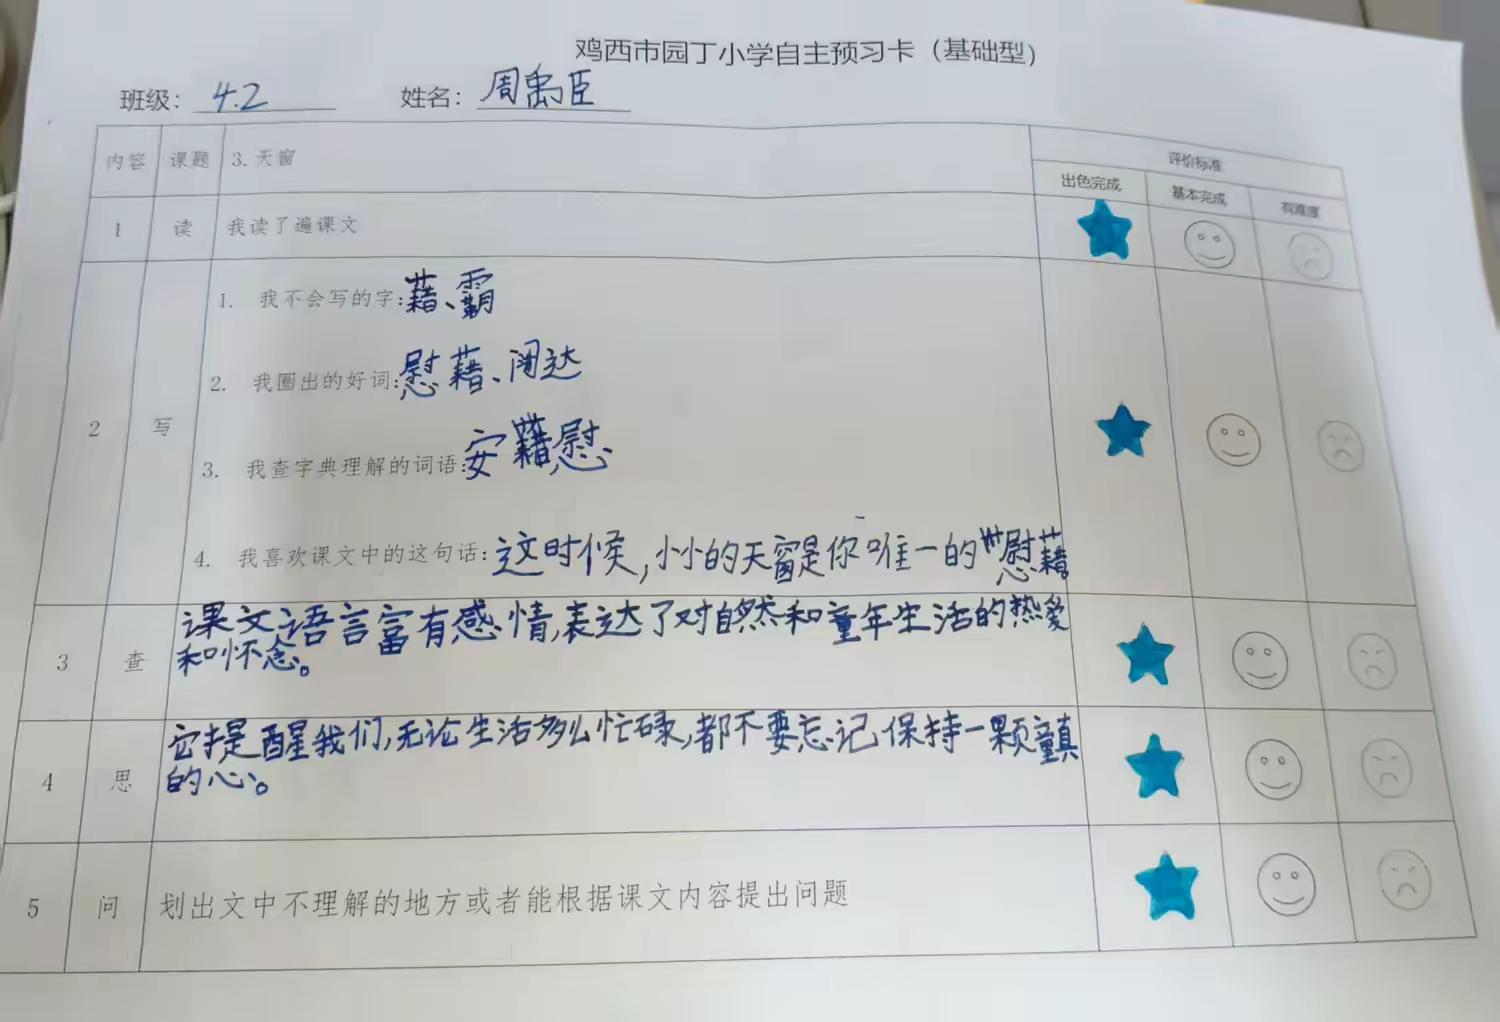 鸡西市园丁小学自主预习卡（基础型）
班级：4.2 姓名：周禹臣
内容 课题 3.天窗 评价标准
出色完成 基本完成 有难度
1 读 我读了遍课文
1. 我不会写的字：藉、霸
2. 我圈出的好词：慰藉、阔达
2 写
3. 我查字典理解的词语：安藉,慰
4. 我喜欢课文中的这句话：这时候,小小的天窗是你唯一的慰藉。
课文语言富有感情,表达了对自然和童年生活的热爱
3 查 和怀念。
它提醒我们,无论生活多么忙碌,都不要忘记保持一颗童真
4 思 的心。
5 问 划出文中不理解的地方或者能根据课文内容提出问题